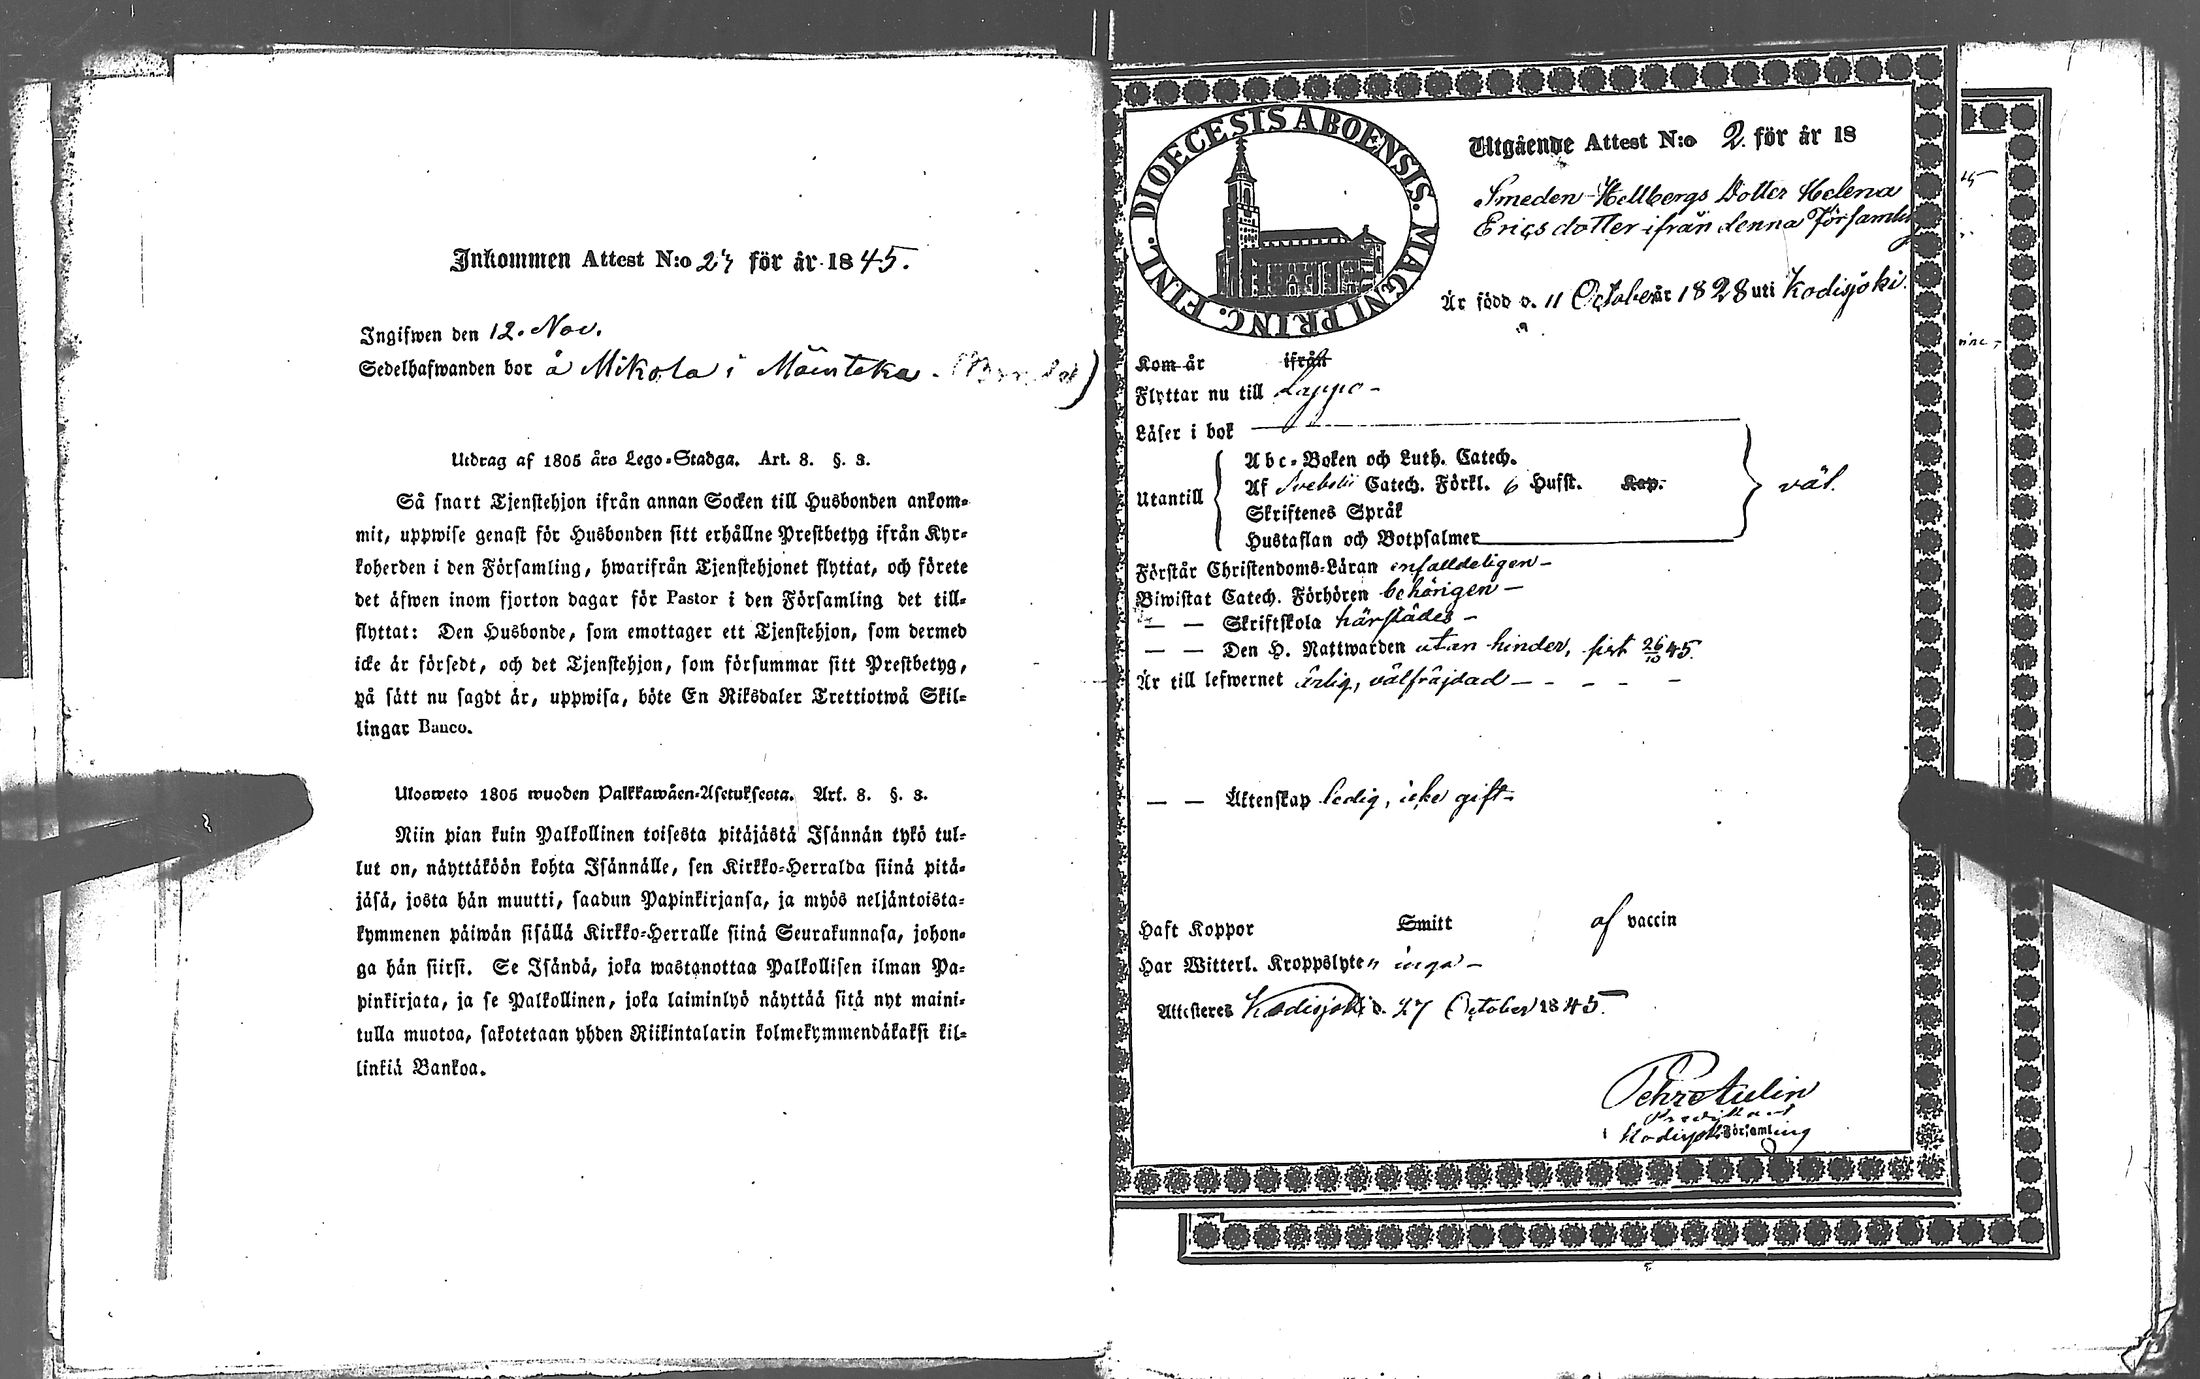 Inkommen Attest N:o 27 för år 1845.
Ingifwen den 12. Nov.
Sedelhafwanden bor å Mikola i Mäintaka.
Utdrag af 1805 års Lego-Stadga. Art. 8. §. 3.
Så snart Tjenstehjon ifrån annan Socken till Husbonden ankom-
mit, uppwise genast för Husbonden sitt erhållne Prestbetyg ifrån Kyr-
koherden i den Församling, hwarifrån Tjenstehjonet flyttat, och förete
det äfwen inom fjorton dagar för Pastor i den Församling det till-
flyttat: Den Husbonde, som emottager ett Tjenstehjon, som dermed
icke är försedt, och det Tjenstehjon, som försummar sitt Prestbetyg,
på sätt nu sagdt är, uppwisa, böte En Riksdaler Trettiotwå Skil-
lingar Banco.
Ulosweto 1805 wuoden Palkkawäen-Asetuksesta. Art. 8. §. 3.
Niin pian kuin Palkollinen toisesta pitäjästä Isännän tykö tul-
lut on, näyttäköön kohta Isännälle, sen Kirkko-Herralda siinä pitä-
jäsä, josta hän muutti, saadun Papinkirjansa, ja myös neljäntoista-
kymmenen päiwän sisällä Kirkko-Herralle siinä Seurakunnasa, johon-
ga hän siirsi. Se Isändä, joka wastanottaa Palkollisen ilman Pa-
pinkirjata, ja se Palkollinen, joka laiminlyö näyttää sitä nyt maini-
tulla muotoa, sakotetaan yhden Riikintalarin kolmekymmendäkaksi kil-
linkiä Bankoa.
DIOECESIS ABOENSIS. MAGNI PRINC. FINL.
Utgående Attest N:o 2. för år 18
Smeden Hellbergs Dotter Helena
Ericsdotter ifrån denna Församling
Är född d. 11 October år 1828 uti Kodisjoki.
Kom år ifrån
Flyttar nu till Lappo
Läser i bok
Utantill
Abc-Boken och Luth. Catech.
Af Svebelii Catech. Förkl. 6 Hufst. Kap.
Skriftenes Språk
Hustaflan och Botpsalmer
väl.
Förstår Christendoms-Läran enfalldeligen
Biwistat Catech. Förhören behörigen
— — Skriftskola härstädes
— — Den H. Nattwarden utan hinder, sist 26/10 45.
Är till lefwernet ärlig, välfräjdad
— — Äktenskap ledig, icke gift
Haft Koppor Smitt af vaccin
Har Witterl. Kroppslyten inga
Attesteres Kodisjoki d. 27 October 1845.
Pehr Aulin
Predikant
i Kodisjoki Församling